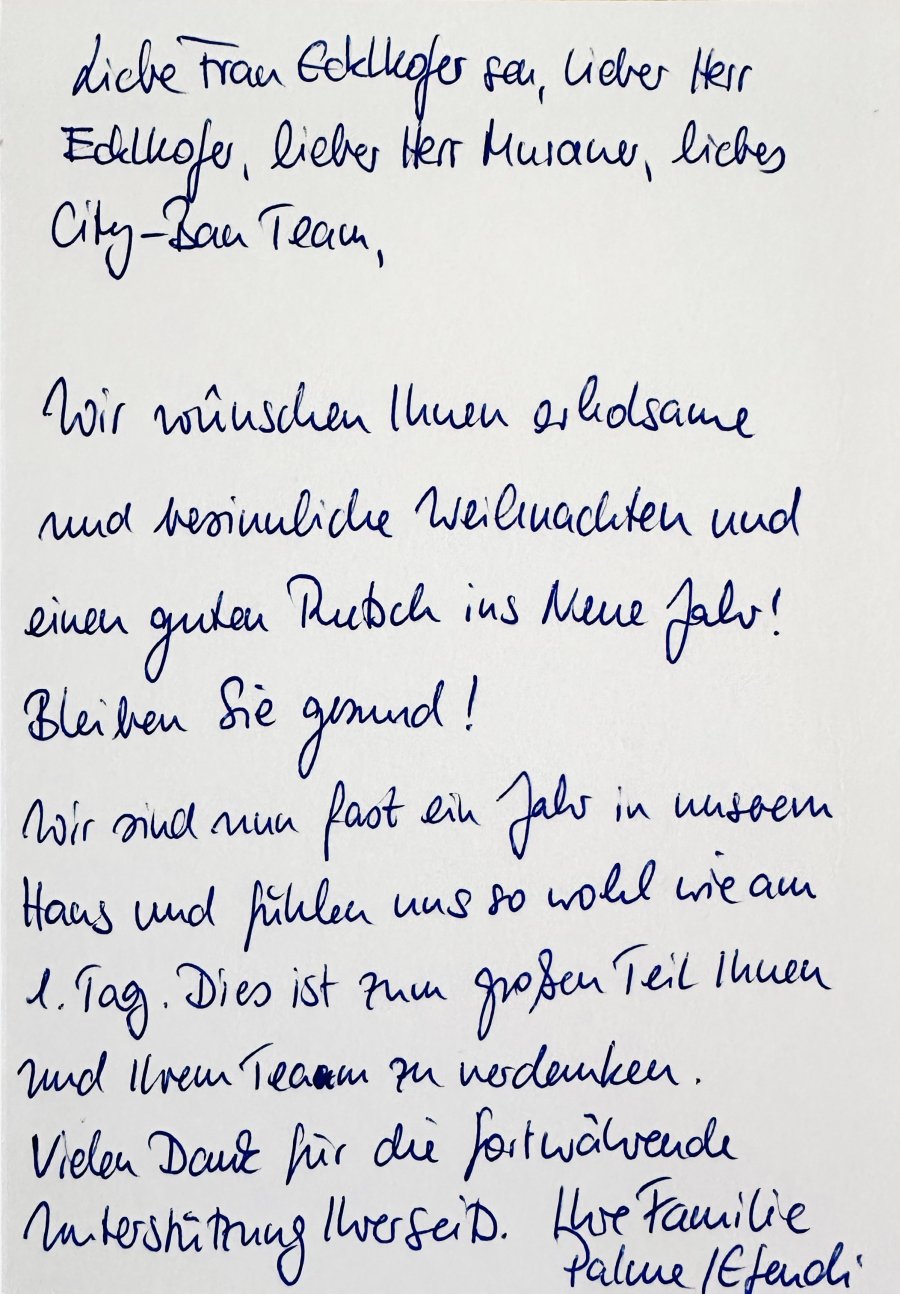 Liebe Frau Ecklkofer sen, lieber Herr
Ecklkofer, lieber Herr Muraner, liebes
City-Bau Team,
Wir wünschen Ihnen erholsame
und besinnliche Weihnachten und
einen guten Rutsch ins Neue Jahr!
Bleiben Sie gesund!
Wir sind nun fast ein Jahr in unserem
Haus und fühlen uns so wohl wie am
1. Tag. Dies ist zum großen Teil Ihnen
und Ihrem Team zu verdanken.
Vielen Dank für die fortwährende
Unterstützung Ihrerseits. Ihre Familie
Palme/Efendi